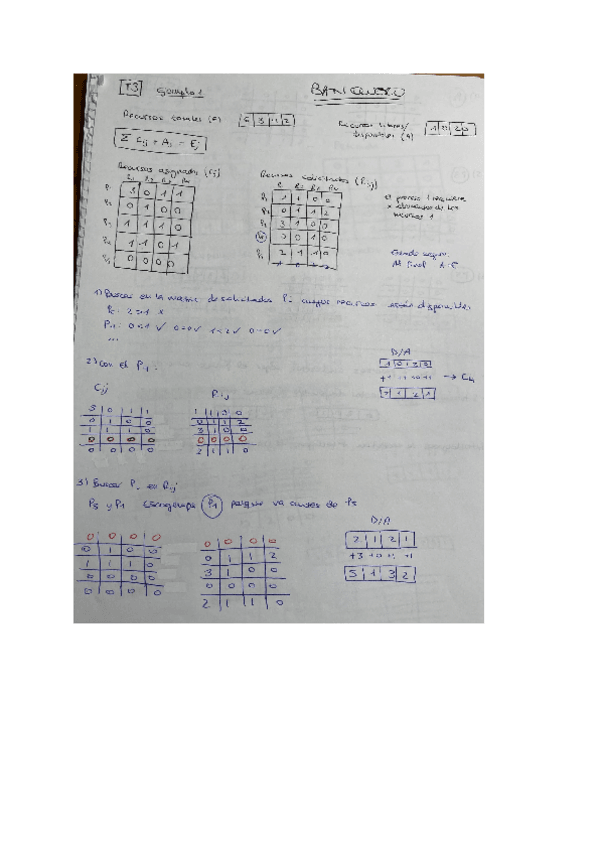 T3 Ejemplo 1 BANQUERO
Recursos totales (E) 6 3 4 2
Recursos libres/ disponibles (A) 1 0 2 0
Σ Cij + Aj = Ej
Recursos asignados (Cij)
R1 R2 R3 R4
P1 3 0 1 1
P2 0 1 0 0
P3 1 1 1 0
P4 1 1 0 1
P5 0 0 0 0
Recursos solicitados (Rij)
R1 R2 R3 R4
P1 1 1 0 0
P2 0 1 1 2
P3 3 1 0 0
P4 0 0 1 0
P5 2 1 1 0
el proceso 1 requiere
x
recursos 1
Estado seguro
Al final A = E
1) Buscar en la matriz de solicitados Pi cuyos recursos están disponibles
x
P4: 0<1 ✓ 0=0 ✓ 1<2 ✓ 0=0 ✓
...
2) con el P4:
Cij
3 0 1 1
0 1 0 0
1 1 1 0
0 0 0 0
0 0 0 0
Rij
1 1 0 0
0 1 1 2
3 1 0 0
0 0 0 0
2 1 1 0
D/A
1 0 2 0
+1 +1 +0 +1 → C4
2 1 2 1
3) Buscar Pi en Rij
P5 y P1 escogemos P1 porque va antes de P5
0 0 0 0
0 1 0 0
1 1 1 0
0 0 0 0
0 0 0 0
0 0 0 0
0 1 1 2
3 1 0 0
0 0 0 0
2 1 1 0
D/A
2 1 2 1
+3 +0 +1 +1
5 1 3 2